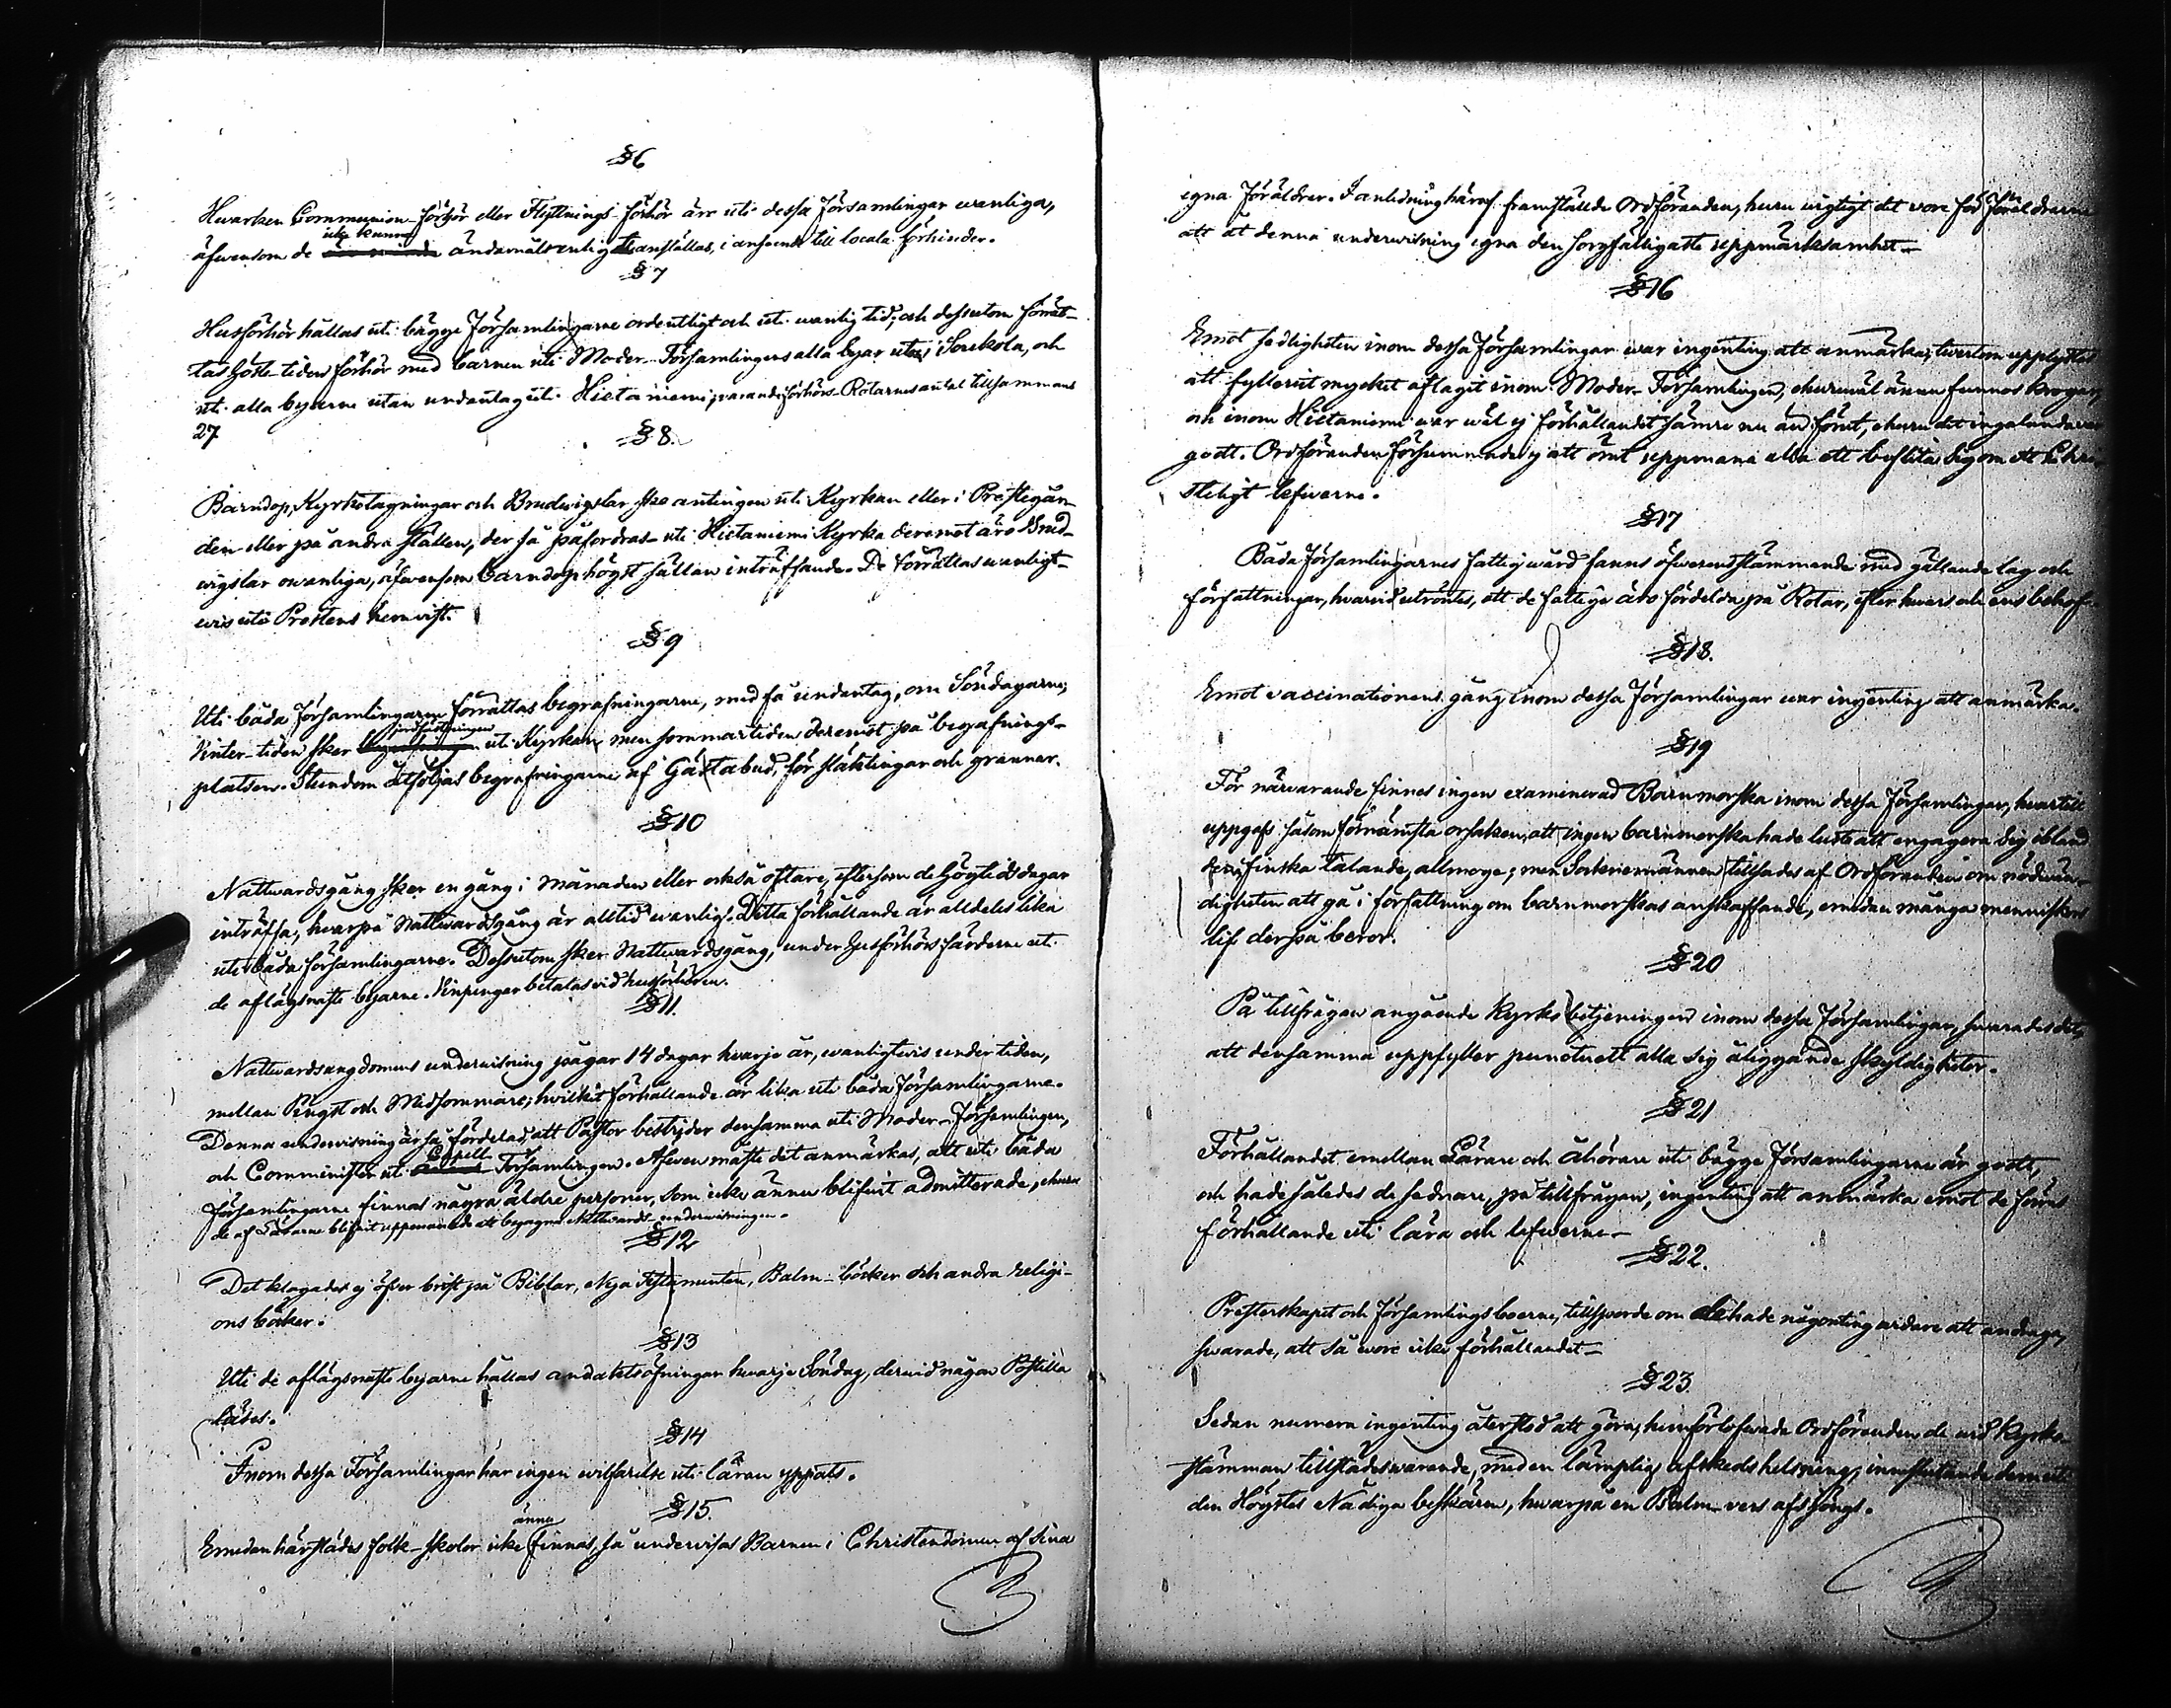 §6
Hwarken Communion-förhör eller Flyttnings-förhör äro uti dessa Församlingar wanliga,
icke kunna
äfwensom de ändamålsenligt anställas, i anseende till locala förhinder.
§7
Husförhör hållas uti bägge Församlingarne ordentligt och uti wanlig tid; och dessutom förrät-
tas höste-tiden förhör med barnen uti Moder-Församlingens alla byar utom i Soukola, och
uti alla byarne utan undantag uti Hietaniemi; warande förhörs-Rotarnes antal tillsammans
27
§8.
Barndop, Kyrkotagningar och Brudwigslar ske antingen uti Kyrkan eller i Prestegår-
den eller på andra ställen, der så påfordras- uti Hietaniemi Kyrka deremot äro Brud-
wigslar owanliga, äfwensom barndop högst sällan inträffande. De förrättas wanligt-
wis uti Prestens hemwist.
§9
Uti båda Församlingarne förrättas begrafningarne, med få undantag, om Söndagarne;
jordfästningen
Winter-tiden sker uti Kyrkan, men sommartiden deremot på begrafnings-
platsen. Stundom åtföljas begrafningarne af Gästabud, för slägtingar och grannar.
§10
Nattwardsgång sker en gång i månaden eller också oftare, eftersom de Högtidsdagar
inträffa, hwarpå Nattwardsgång är alltid wanlig. Detta förhållande är alldeles lika
uti båda församlingarne. Dessutom sker Nattwardsgång, under husförhörs färderne uti
de aflägsnaste byarne. Winpengar betalas wid husförhören.
§11.
Nattwardsungdomens underwisning pågår 14 dagar hwarje år, wanligtwis under tiden,
mellan Pingst och Midsommar; hwilket förhållande är lika uti båda Församlingarne.
Denna underwisning är så fördelad, att Pastor bestrider densamma uti Moder-Församlingen,
Capell
och Comminister uti Församlingen. Äfwen måste det anmärkas, att uti båda
Församlingarne finnas några äldre personer, som icke ännu blifwit admitterade, ehuru
de af Lärarne blifwit uppmanade att begagna Nattwards-underwisningen.
§12
Det klagades ej öfwer brist på Biblar, Nya Testamenten, Psalm-böcker och andra religi-
ons böcker.
§13
Uti de aflägsnaste byarne hållas andaktsöfningar hwarje Söndag, derwid någon Postilla
läses.
§14
Inom dessa Församlingar har ingen willfarelse uti läran yppats.
§15.
ännu
Emedan härstädes folk-skolor icke finnas, så underwisas Barnen i Christendomen af sina
egna Föräldrar. I anledning häraf framställde Ordföranden, huru wigtigt det wore för Föräldrarne
att åt denna underwisning egna den sorgfälligaste uppmärksamhet-
§16
Emot sedligheten inom dessa Församlingar war ingenting att anmärka; twertom upplystes
att fylleriet mycket aftagit inom Moder-Församlingen, ehuruwäl ännu funnos krogar,
och inom Hietaniemi war wäl ej förhållandet sämre nu än förut, ehuru det ingalunda war
godt. Ordföranden försummade ej att ömt uppmana alla att beflita sig om ett Chri-
steligt lefwerne.
§17
Båda Församlingarnes fattigwård fanns öfwerensstämmande med gällande lag och
författningar, hwarwid utröntes, att de fattige äro fördelda på Rotar, efter hwars och ens behof.
§18.
Emot vaccinationens gång inom dessa Församlingar war ingenting att anmärka.
§19
För närwarande finnes ingen examinerad Barnmorska inom dessa Församlingar, hwartill
uppgafs såsom förnämsta orsaken, att ingen barnmorska hade lust att engagera sig ibland
den finska talande allmoge; men Socknemännen tillsades af Ordföranden om nödwän-
digheten att gå i författning om barnmorskas anskaffande, emedan många menniskors
lif derpå beror.
§20
På tillfrågan angående Kyrko betjeningen inom dessa Församlingar, swarades det,
att densamma uppfyller punctuelt alla sig åliggande skyldigheter.
§21
Förhållandet emellan Lärare och åhörare uti bägge Församlingarne är godt,
och hade således de sednare, på tillfrågan, ingenting att anmärka emot de förras
förhållande uti lära och lefwerne-
§22.
Presterskapet och Församlingsboerne, tillsporde om de hade någonting widare att andraga,
swarade, att så wore icke förhållandet-
§23.
Sedan numera ingenting återstod att göra, hemförlofwade Ordföranden de wid Kyrko-
stämman tillstädeswarande, med en lämplig afskeds helsning, inneslutande dem uti
den Högstes Nådiga beskärm, hwarpå en Psalm-vers afsjöngs.